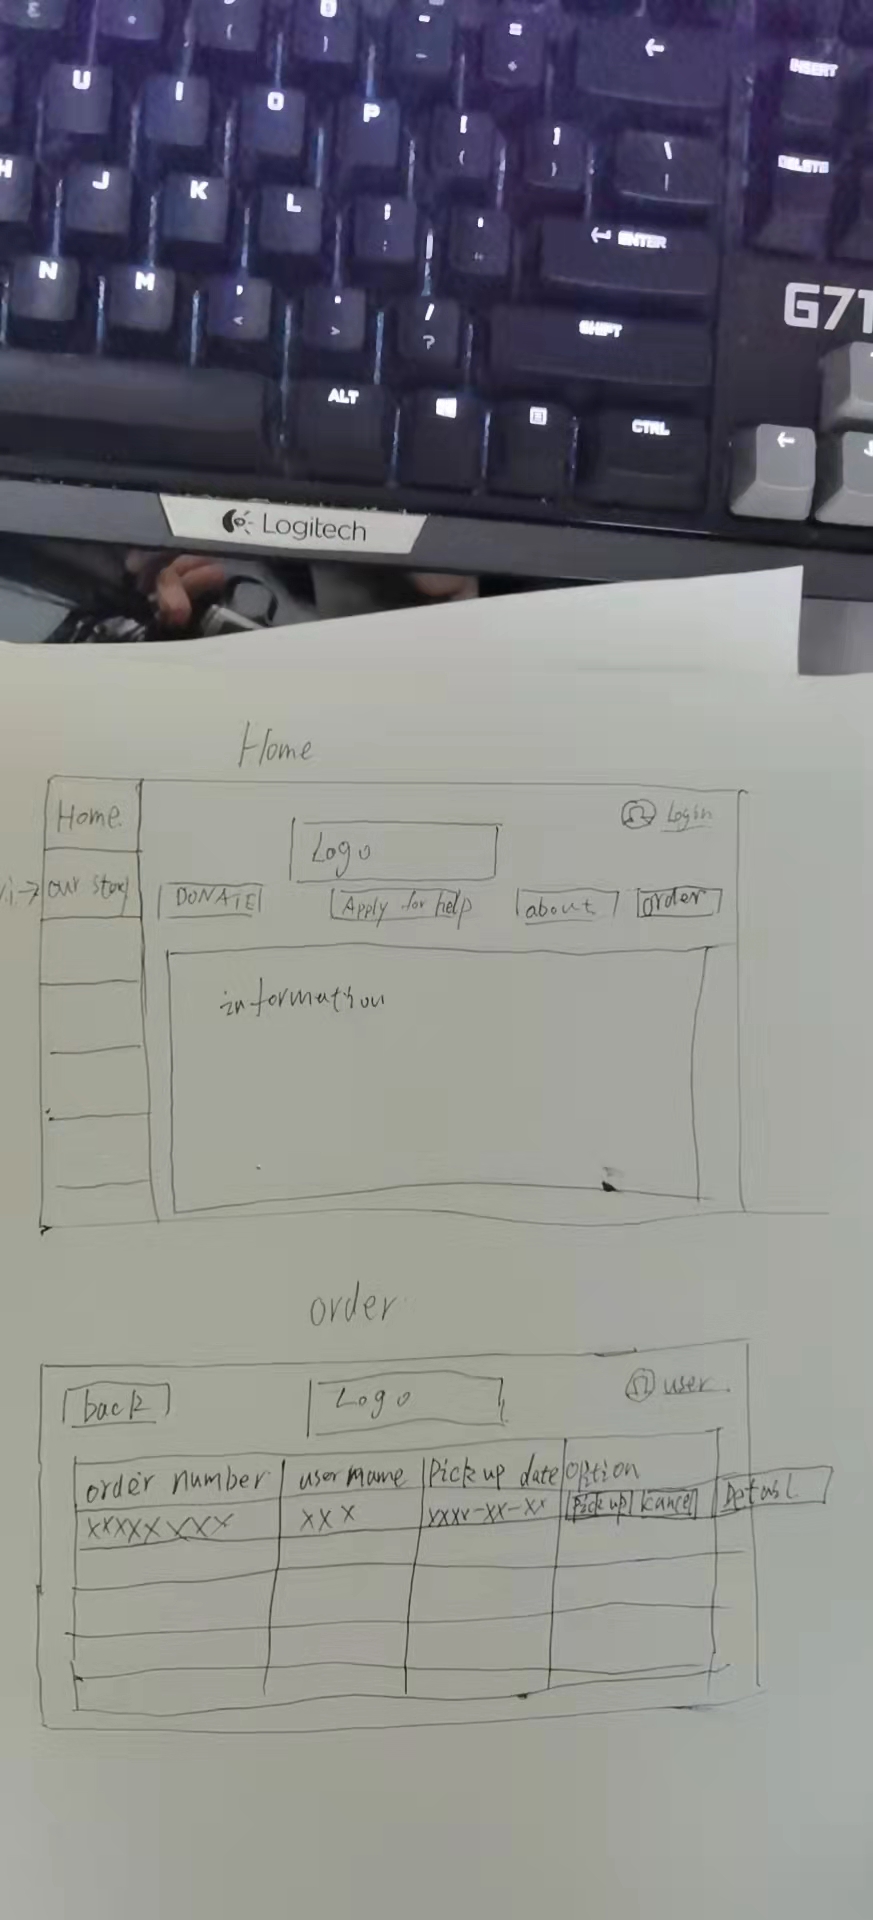 U I O P [ ] \ INSERT
( ) _ + { } |
H J K L ; ' ENTER DELETE
: "
N M , . / SHIFT G71
< > ?
ALT CTRL
Logitech
Home
Home
Login
Logo
our story
DONATE Apply for help about order
information
order
back Logo user
order number username Pick up date Option
XXXXXXXX XXX XXXX-XX-XX Pick up Cancel Detail